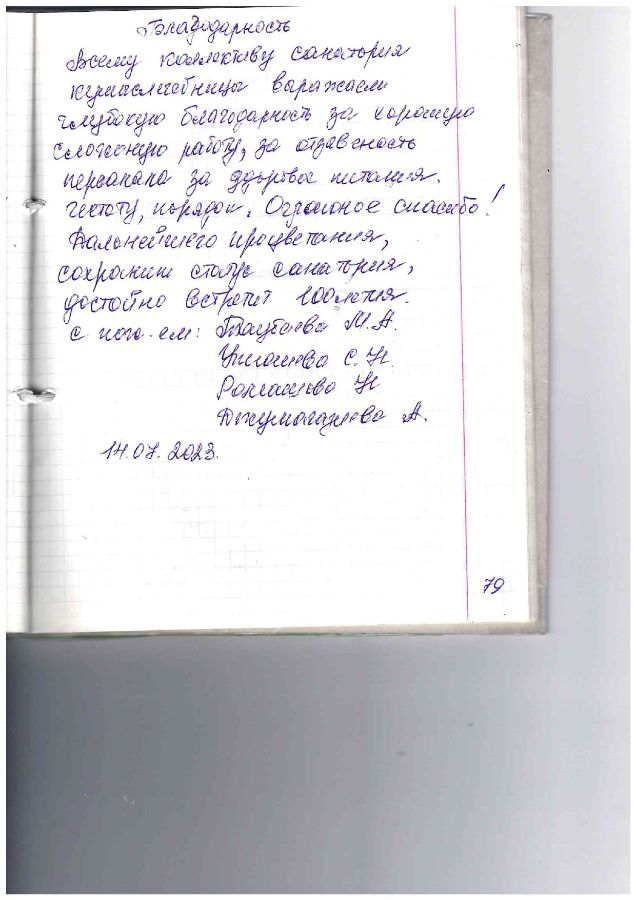 Благодарность
Всему коллективу санатория
выражаем
глубокую благодарность за хорошую
слаженную работу, за отдавность
персонала за здоровое питания.
Чистоту, порядок. Огромное спасибо!
Дальнейшего процветания,
сохраним статус санатория,
достойно встретит 100летия.
С
М.А.
С. Н.
Н
Джумагалиева А.
14.07.2023.
79